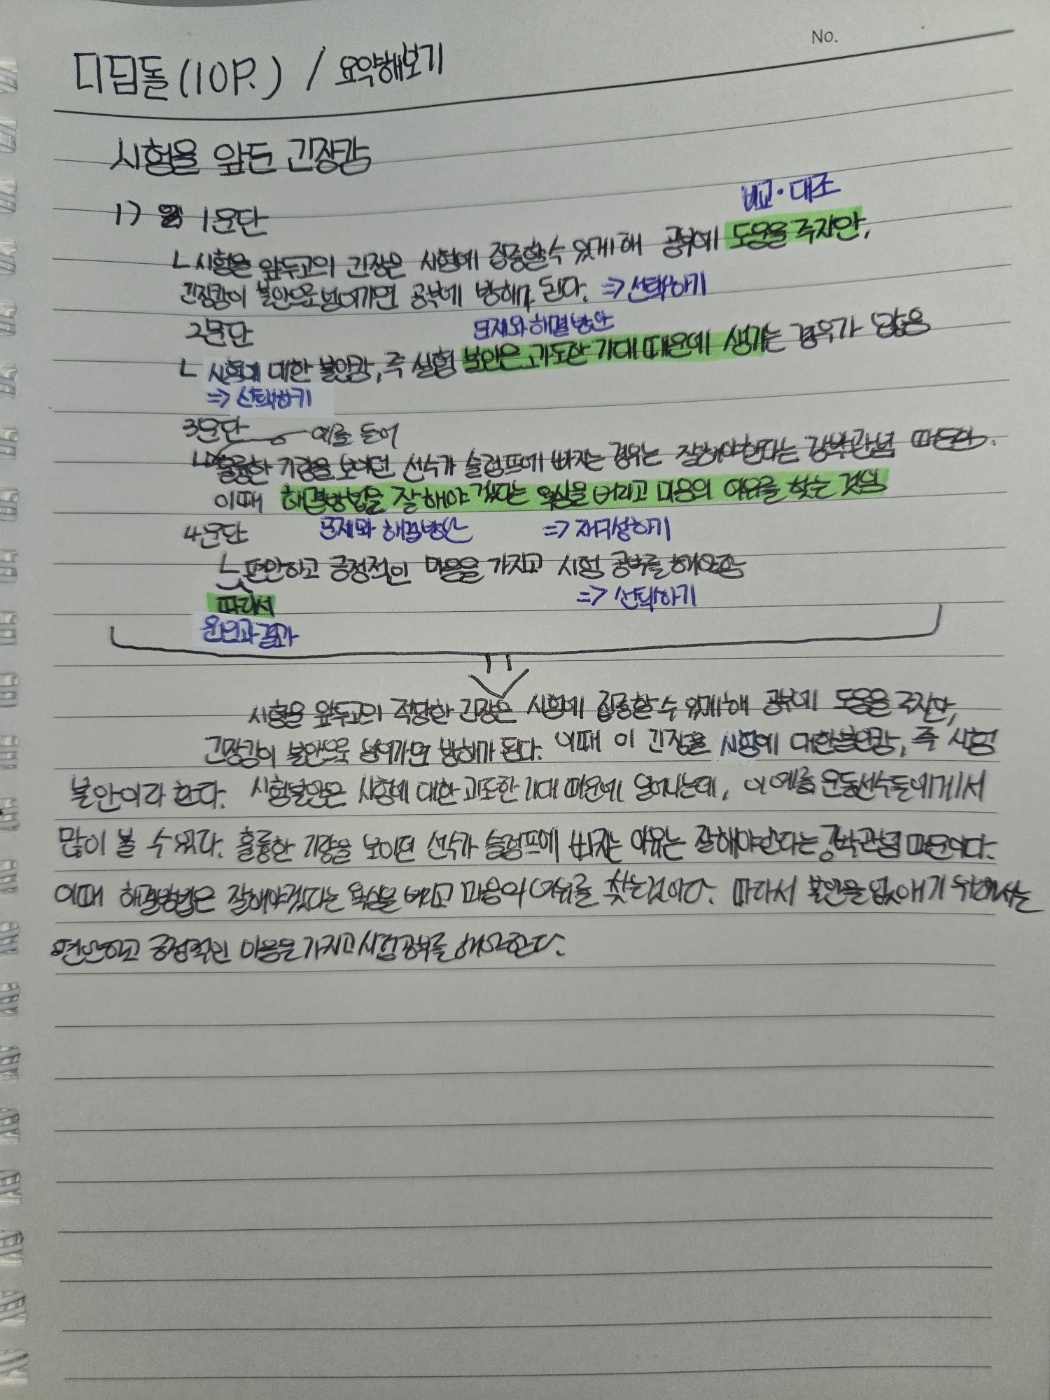 No.
디딤돌(10P.) / 요약해보기
시험을 앞둔 긴장감
1) 1문단
비교·대조
ㄴ시험은 앞두고의 긴장은 시험에 집중할 수 있게 해 공부에 도움을 주지만,
긴장감이 불안으로 넘어가면 공부에 방해가 된다. ⇒ 선택하기
2문단
문제와 해결 방안
ㄴ 시험에 대한 불안감, 즉 실험 불안은 과도한 기대 때문에 생기는 경우가 많음
⇒ 선택하기
3문단 예를 들어
ㄴ훌륭한 기량을 보이던 선수가 슬럼프에 빠지는 경우는 잘해야한다는 강박관념 때문임.
이때 해결방법은 잘 해야 겠다는 욕심을 버리고 마음의 여유를 찾는 것임
문제와 해결 방안 ⇒ 재구성하기
4문단
ㄴ편안하고 긍정적인 마음을 가지고 시험 공부를 해야함
따라서 ⇒ 선택하기
원인과 결과
시험을 앞두고의 적당한 긴장은 시험에 집중할 수 있게 해 공부에 도움을 주지만,
긴장감이 불안으로 넘어가면 방해가 된다. 이때 이 긴장을 시험에 대한불안감, 즉 시험
불안이라 한다. 시험불안은 시험에 대한 과도한 기대 때문에 일어나는데, 이 예를 운동선수들에게서
많이 볼 수 있다. 훌륭한 기량을 보이던 선수가 슬럼프에 빠지는 이유는 잘해야한다는 강박관념 때문이다.
이때 해결방법은 잘해야겠다는 욕심을 버리고 마음의 여유를 찾는것이다. 따라서 불안을 없애기 위해서는
편안하고 긍정적인 마음을 가지고 시험공부를 해야한다.